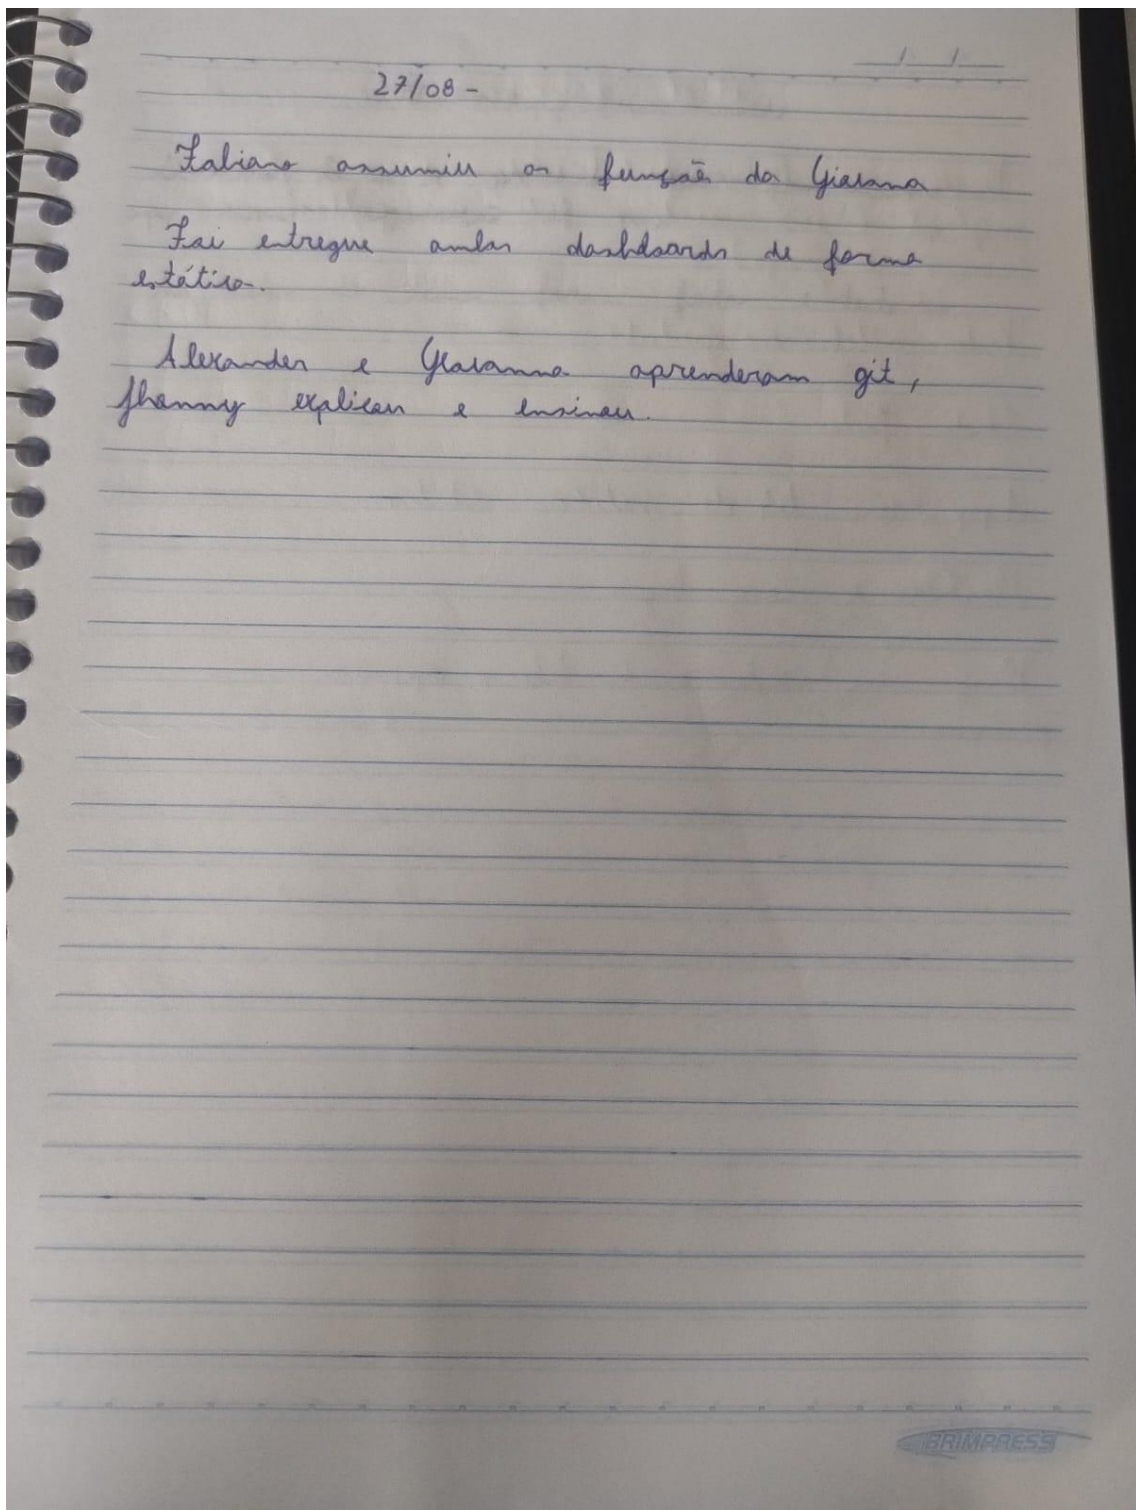 27/08 -
Fabiano assumiu as função da Giovana
Foi entregue ambas dashboards de forma
estática.
Alexander e Geovanna aprenderam git,
Jhonny explicou e ensinou.
BRIMPRESS